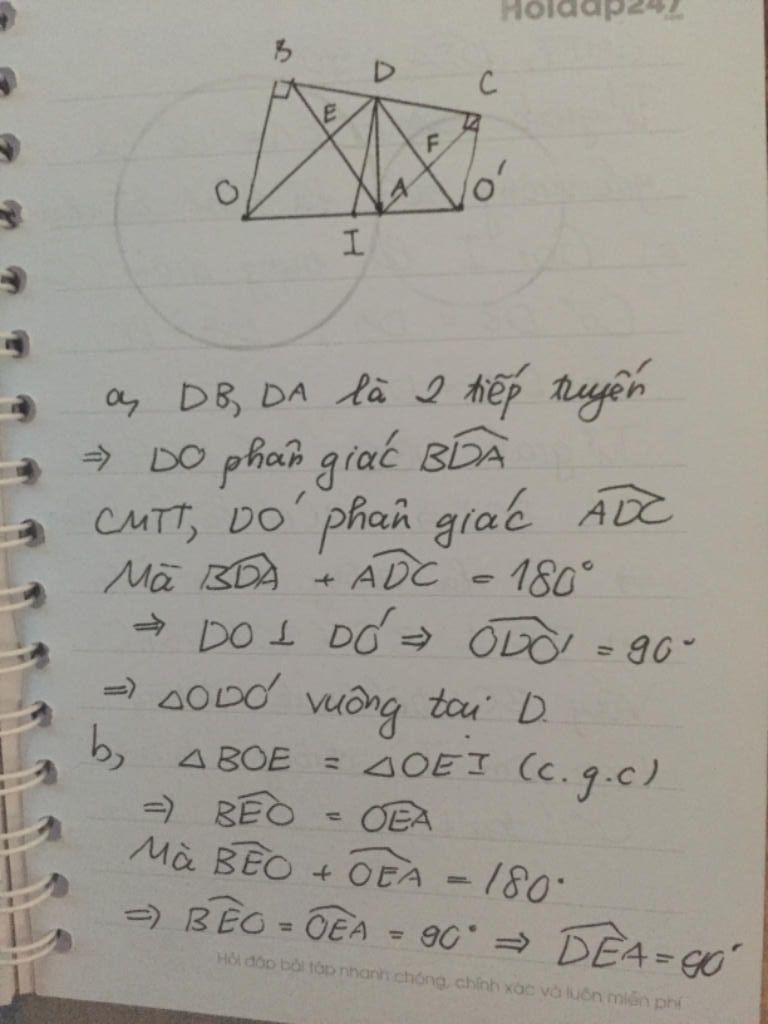 Hoidap247
.com
B
D
C
E
F
O
A
O'
I
a, DB, DA là 2 tiếp tuyến
⇒ DO phân giác \widehat{BDA}
CMTT, DO' phân giác \widehat{ADC}
Mà \widehat{BDA} + \widehat{ADC} = 180°
⇒ DO ⊥ DO' ⇒ \widehat{ODO'} = 90°
⇒ △ODO' vuông tại D.
b, △BOE = △OEI (c.g.c)
⇒ \widehat{BEO} = \widehat{OEA}
Mà \widehat{BEO} + \widehat{OEA} = 180°
⇒ \widehat{BEO} = \widehat{OEA} = 90° ⇒ \widehat{DEA} = 90°
Hỏi đáp bài tập nhanh chóng, chính xác và luôn miễn phí